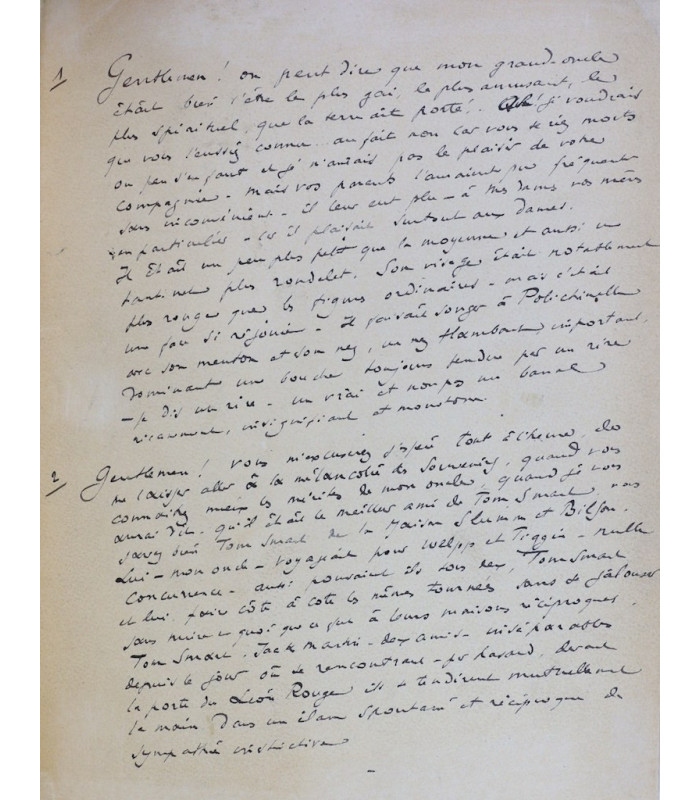 1/ Gentlemen! on peut dire que mon grand-oncle
était bien l'être le plus gai, le plus amusant, le
plus spirituel que la terre ait porté! je voudrais
que vous l'eussiez connu... au fait non car vous seriez morts
ou peu s'en faut et je n'aurais pas le plaisir de votre
compagnie - mais vos parents l'auraient pu fréquenter
sans inconvénient - il leur eut plu - à Mes dames vos mères
en particulier - car il plaisait surtout aux Dames.
Il était un peu plus petit que la moyenne, et aussi un
tantinet plus rondelet. Son visage était notablement
plus rouge que les figures ordinaires - mais c'était
un si réjouie - Il faisait songer à Polichinelle
avec son menton et son nez, un nez flambant important,
Dominant une bouche toujours fendue par un rire
- je dis un rire - un vrai et non pas un banal
ricanement, insignifiant et monotone.
2/ Gentlemen! vous m'excuserez j'espère tout à l'heure, de
me laisser aller à la mélancolie des souvenirs, quand vous
connaîtrez mieux les mérites de mon oncle, quand je vous
aurai dit qu'il était le meilleur ami de Tom Smart vous
savez bien Tom Smart de la Maison Slumm et Bilson.
Lui - mon oncle - voyageait pour Welpp et Tiggin - nulle
concurrence - aussi pouvaient ils tous deux, Tom Smart
et lui faire côte à côte les mêmes tournées sans se jalouser
sans nuire en quoi que ce fut à leurs maisons réciproques.
Tom Smart, Jack Martin - deux amis - inséparables
depuis le jour où se rencontrant - par hasard, devant
la porte du Lion Rouge ils se tendirent mutuellement
la main Dans un élan spontané et réciproque de
sympathie instinctive